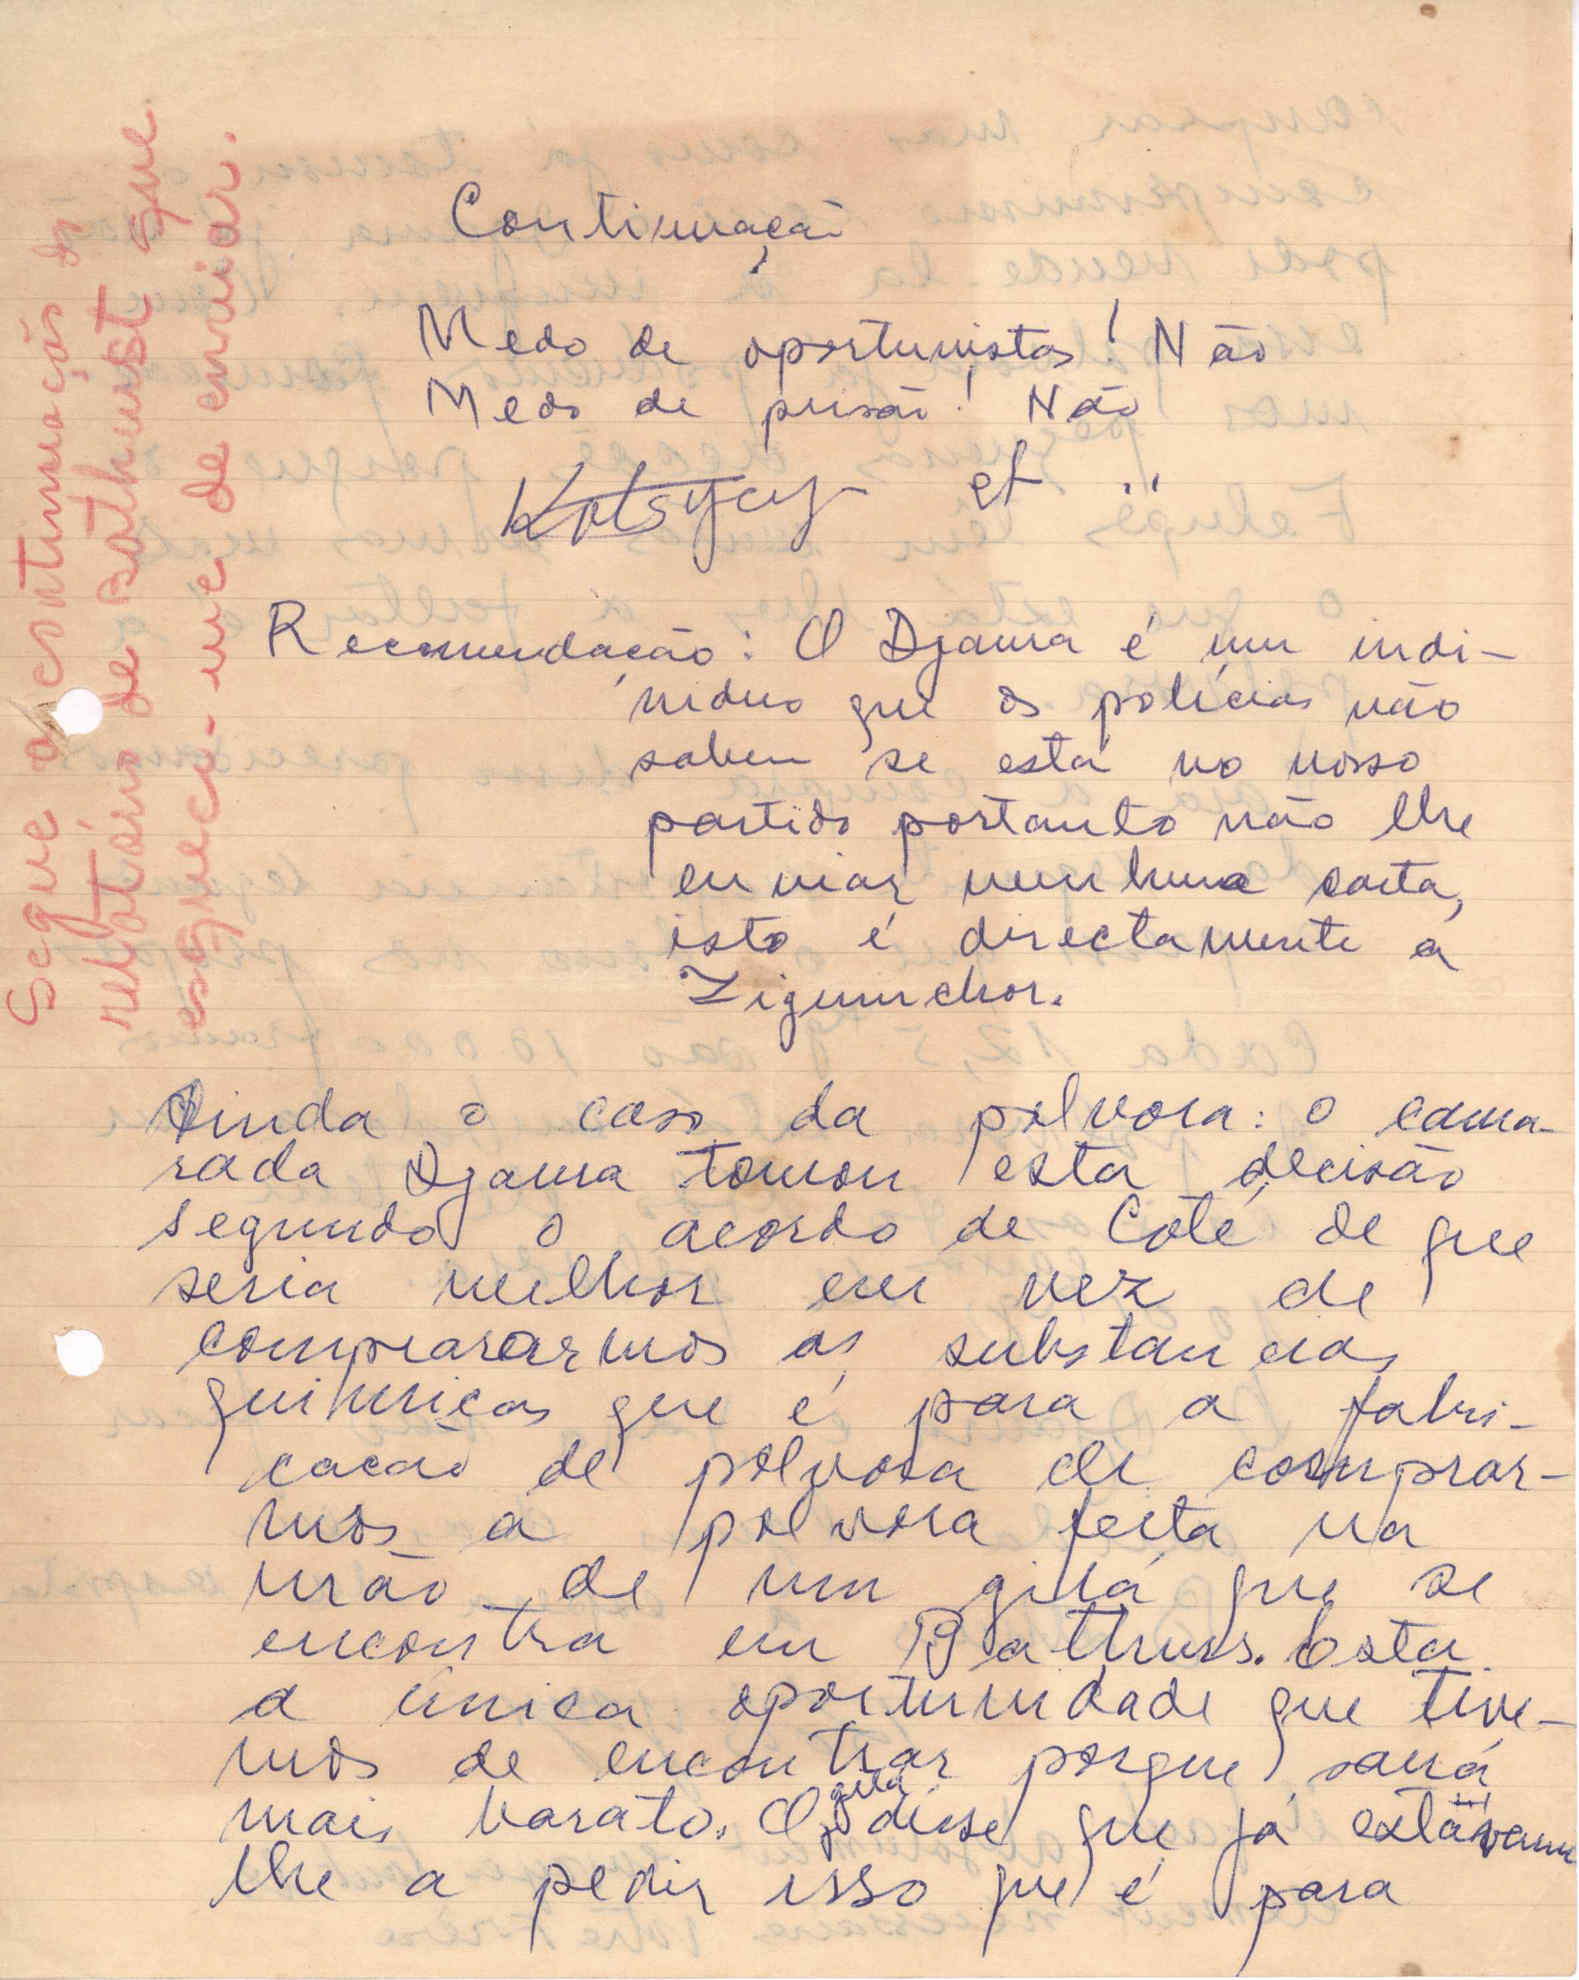 Segue a continuação do
relatório de Bathurst que
esqueci-me de enviar.
Continuação
Medo de oportunistas! Não
Medo de prisão! Não
et ..
Recomendação: O Djama é um indi-
viduo que os polícias não
sabem se está no nosso
partido portanto não lhe
enviar nenhuma carta,
isto é directamente a
Ziguinchor.
Ainda o caso da polvora: o cama-
rada Djama tomou esta decisão
segundo o acordo de Coté de que
seria melhor em vez de
comprararmos as substancias
quimicas que é para a fabri-
cacão de polvora de comprar-
mos a polvora feita na
mão de um gilá que se
encontra em Bathurs. Esta
a única oportunidade que tive-
mos de encontrar porque sairá
mais barato. O gilá disse que já estavam
lhe a pedir isso que é para